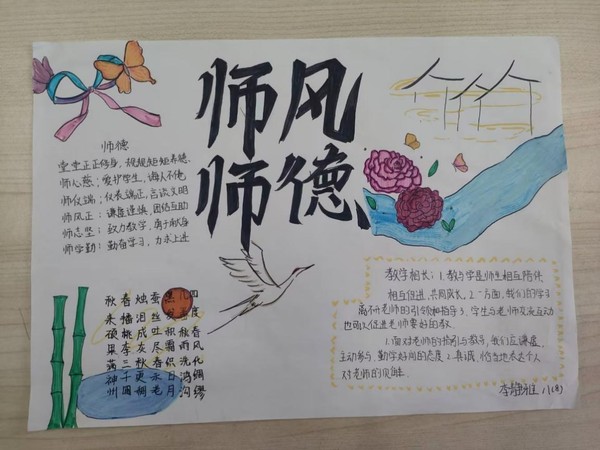 师风
师德
师德
堂堂正正修身,规规矩矩养德
师心慈:爱护学生,诲人不倦
师仪端:仪表端正,言谈文明
师风正:谦虚谨慎,团结互助
师志坚:致力教学,勇于献身
师学勤:勤奋学习,力求上进
四度春风化绸缪
几番秋雨洗鸿沟
黑发积霜织日月
蚕丝吐尽春永老
烛泪成灰秋更
春播桃李三千圃
秋来硕果满神州
教学相长:1.教与学是师生相互陪伴
相互促进,共同成长,2.一方面,我们的学习
离不开老师的引领和指导3.学生与老师交流互动
也可以促进老师更好的教,
1.面对老师的指引与教导,我们应谦虚,
主动参与,勤学好问的态度2.真诚,恰当地表达个人
对老师的见解.